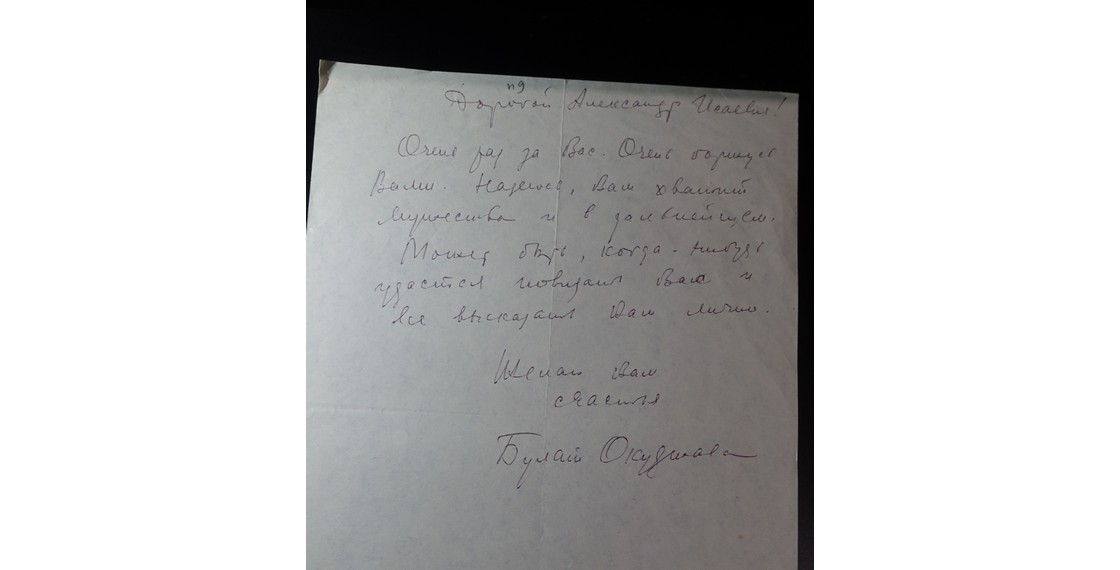 пд
Дорогой Александр Исаевич!
Очень рад за Вас. Очень горжусь
Вами. Надеюсь, Вам хватит
мужества и в дальнейшем.
Может быть, когда-нибудь
удастся повидать Вас и
все высказать Вам лично.
Желаю Вам
счастья
Булат Окуджава